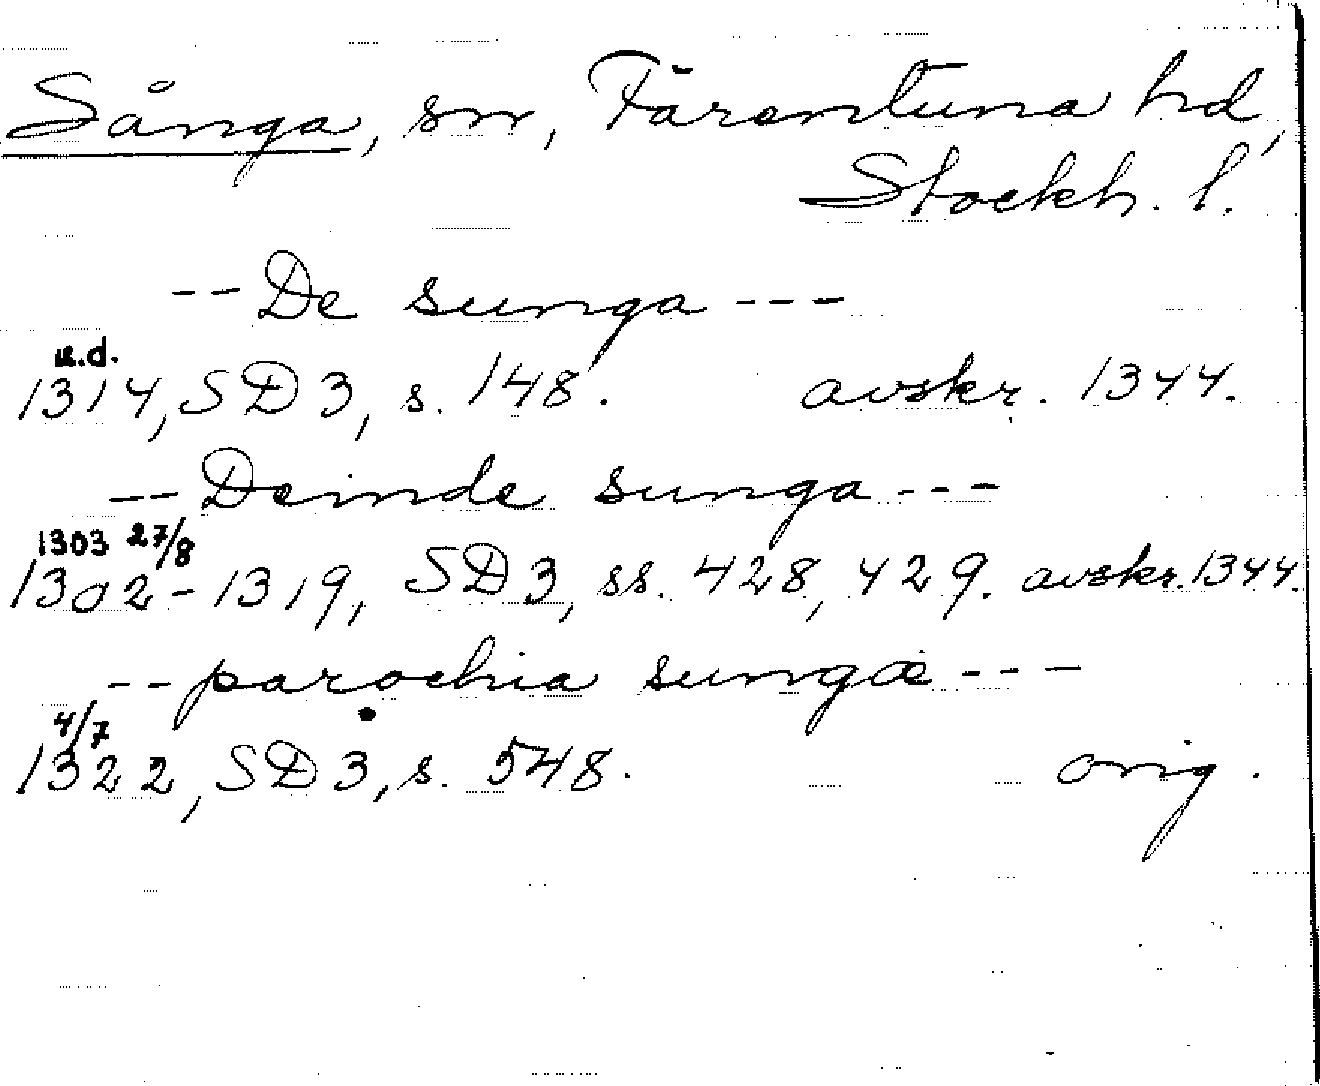 Sånga, sn, Färentuna hd,
Stockh. l.
-- De sunga ---
u.d.
1314, SD 3, s. 148. avskr. 1344.
-- Deinde sunga ---
1303 27/8
1302-1319, SD 3, ss. 428, 429. avskr. 1344.
-- parochia sungæ ---
4/7
1322, SD 3, s. 548. orig.